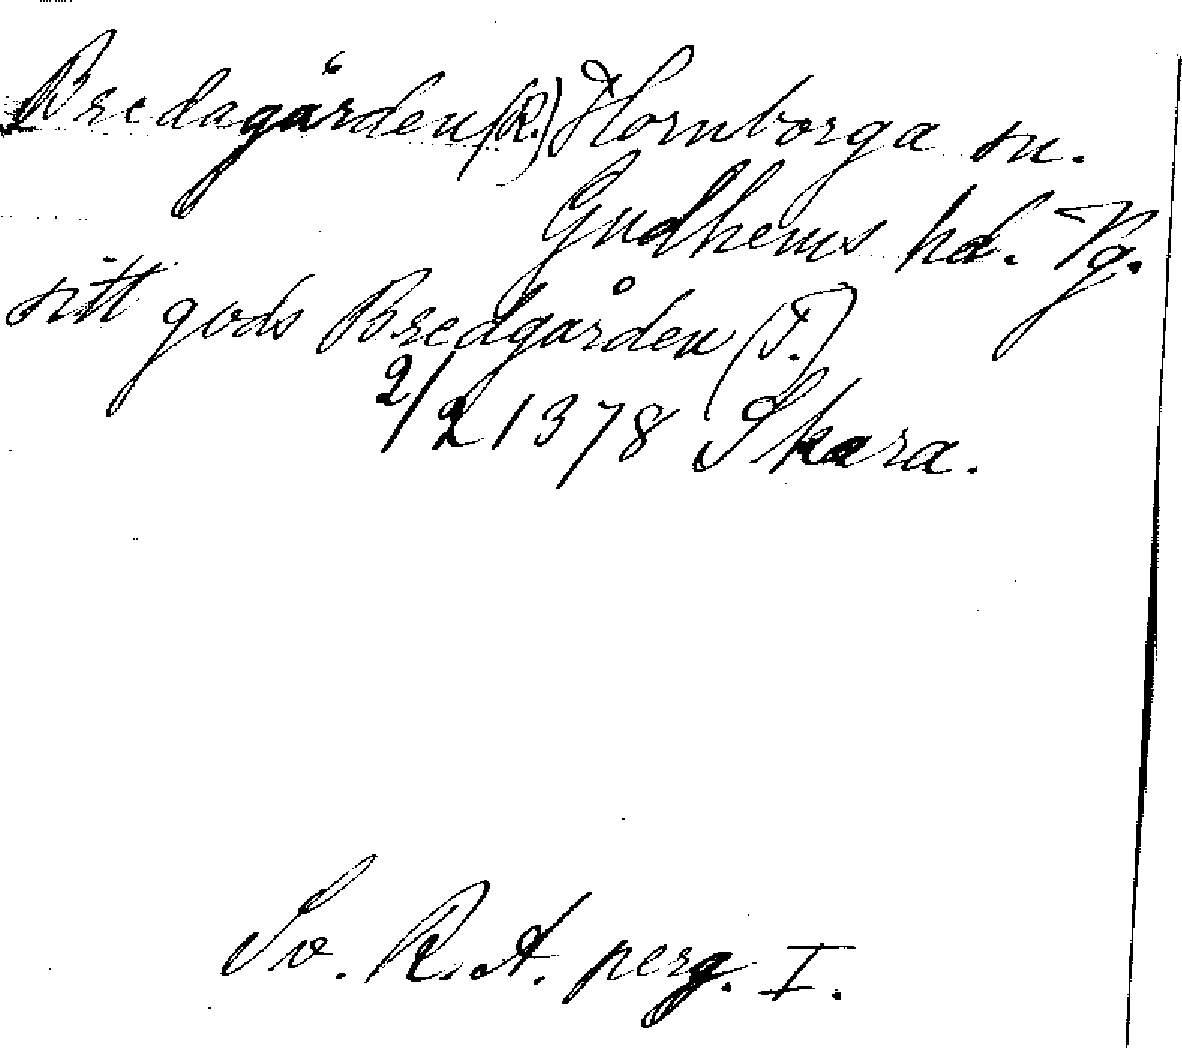 Bredagården (R.) Hornborga sn.
Gudhems hd. Vg.
sitt gods Bredgården (T.)
2/2 1378 Skara.
Sv. R. A. perg. I.